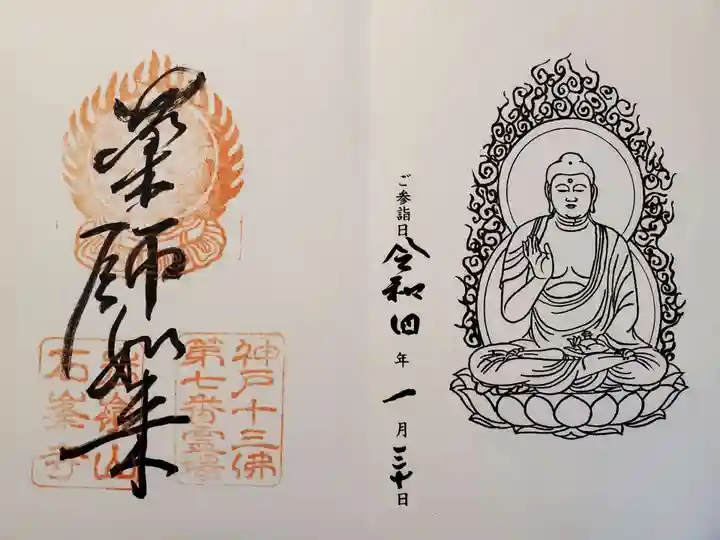 ご参詣日 令和四年一月三十日
薬師如来
神戸十三佛
第七番霊場
岩嶺山
石峯寺